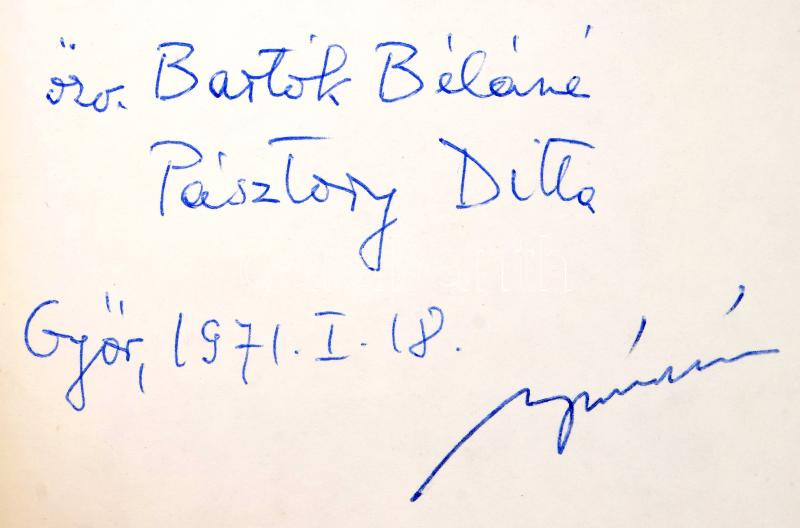 özv. Bartók Béláné
Pásztory Ditta
Győr, 1971. I. 18.